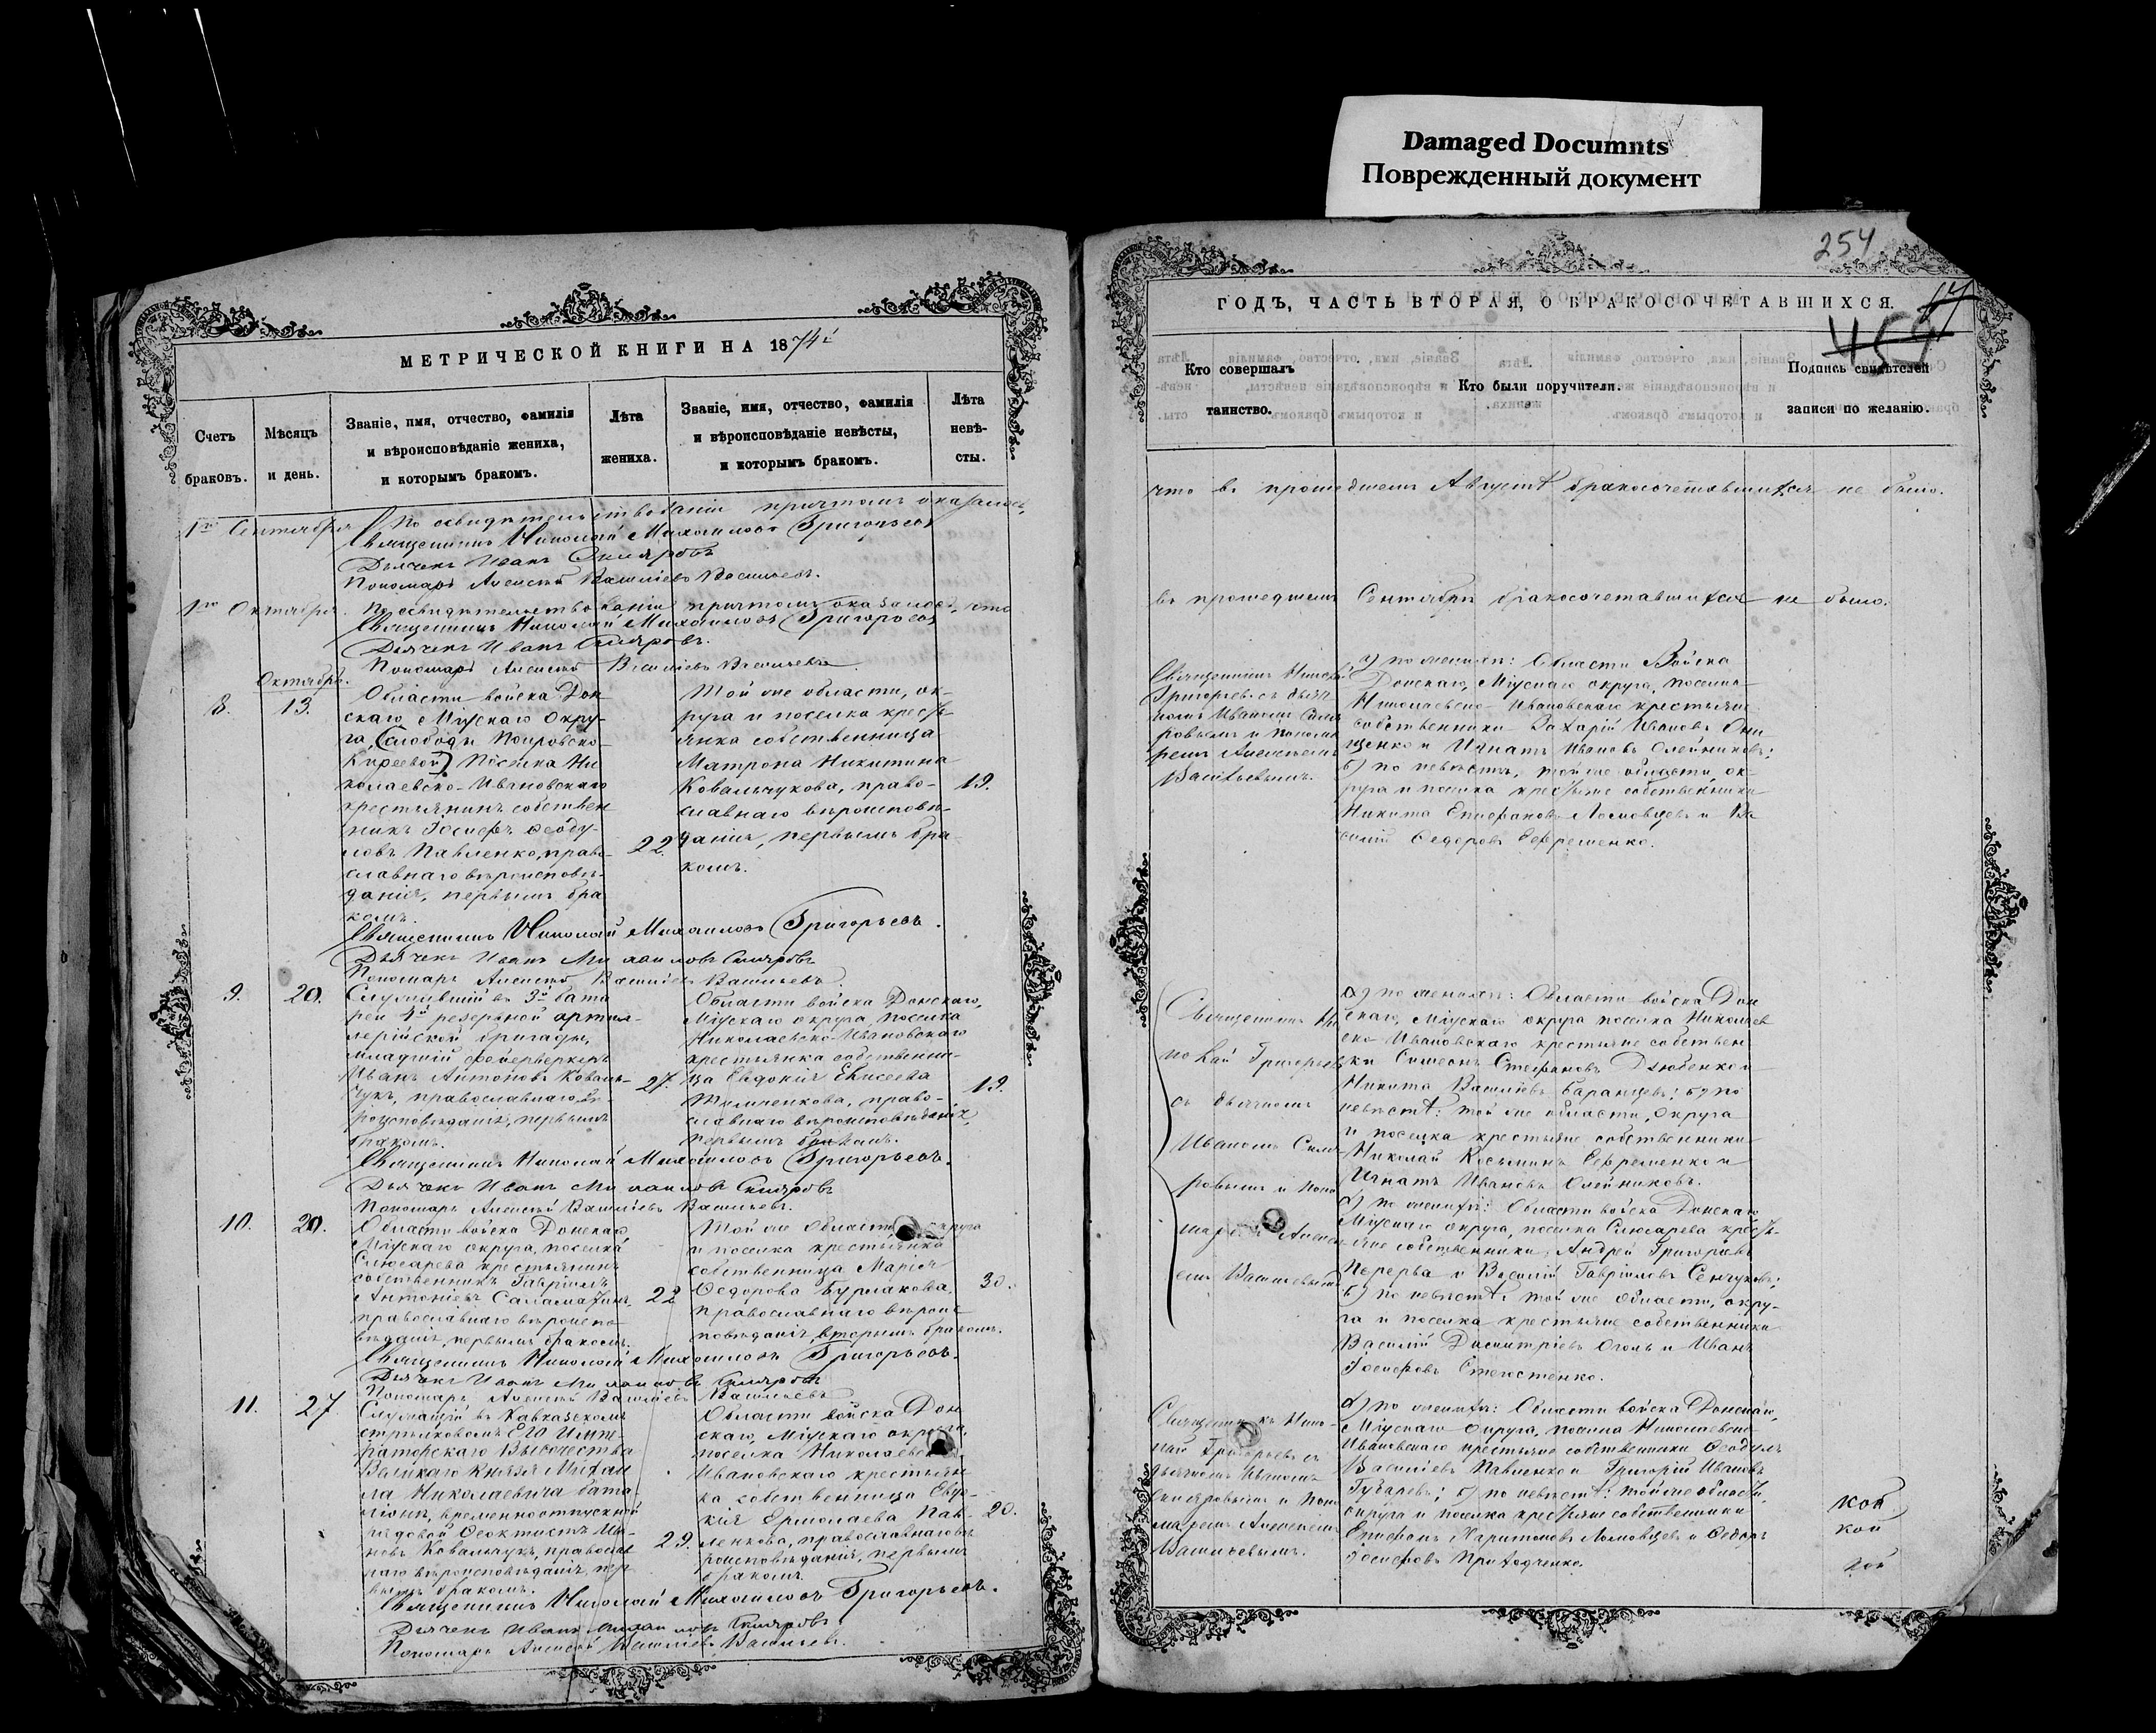 Damaged Documnts
Поврежденный документ
254
МЕТРИЧЕСКОЙ КНИГИ НА 1874й
Счетъ браковъ.
Мѣсяцъ и день.
Званіе, имя, отчество, фамилія
и вѣроисповѣданіе жениха,
и которымъ бракомъ.
Лѣта
жениха.
Званіе, имя, отчество, фамилія
и вѣроисповѣданіе невѣсты,
и которымъ бракомъ.
Лѣта
невѣ-
сты.
1го Сентября По освидѣтельствованіи причтомъ оказалось,
Священникъ Николай Михаиловъ Григорьевъ
Дьячекъ Иванъ Скляровъ
Пономарь Алексѣй Василіевъ Васильевъ.
1го Октября. По освидѣтельствованіи причтомъ оказалось, что
Священникъ Николай Михаиловъ Григорьевъ
Дьячекъ Иванъ Скляровъ.
Пономарь Алексѣй Василіевъ Васильевъ
Октябрь.
8. 13.
Области войска Дон-
скаго, Міускаго окру-
га, (слободы Покровско-
Киреевой) поселка Ни-
колаевско-Ивановскаго
крестьянинъ собствен
никъ Іосифъ Ѳеоду-
ловъ Павленко, право-
славнаго вѣроисповѣ-
данія, первымъ бра
комъ.
22.
Той же области, ок-
руга и поселка кресть
янка собственница
Матрона Никитина
Ковальчукова, право-
славнаго вѣроисповѣ-
данія, первымъ бра-
комъ.
19.
Священникъ Николай Михаиловъ Григорьевъ.
Дьячекъ Иванъ Михаиловъ Скляровъ
Пономарь Алексѣй Василіевъ Васильевъ.
9. 20.
Служившій въ 3й бата
реи 4й резервной артил-
лерійской бригады,
младшій фейерверкеръ
Иванъ Антоновъ Коваль-
чукъ, православнаго вѣ-
роисповѣданія, первымъ
бракомъ.
27.
Области войска Донскаго,
Міускаго округа, поселка
Николаевско-Ивановскаго
крестьянка собственни-
ца Евдокія Елисеева
право-
славнаго вѣроисповѣданія,
первымъ бракомъ.
19.
Священникъ Николай Михаиловъ Григорьевъ.
Дьячекъ Иванъ Михаиловъ Скляровъ
Пономарь Алексѣй Василіевъ Васильевъ.
10. 20.
Области войска Донскаго
Міускаго округа, поселка
Слюсарева крестьянинъ
собственникъ Гавріилъ
Антоніевъ
православнаго вѣроиспо-
вѣданія, первымъ бракомъ.
22
Той же области округа
и поселка крестьянка
собственница Марія
Ѳедорова Бурлакова,
православнаго вѣроис
повѣданія, вторымъ бракомъ.
30.
Священникъ Николай Михаиловъ Григорьевъ.
Дьячекъ Иванъ Михаиловъ Скляровъ
Пономарь Алексѣй Василіевъ Васильевъ
11. 27.
Служащій въ Кавказскомъ
стрѣлковомъ ЕГО Импе-
раторскаго Высочества
Великаго Князя Михаи
ла Николаевича бата-
ліонѣ, временноотпускной
рядовой Ѳеоктистъ
Ковальчукъ, правосла
наго вѣроисповѣданія, пер
вымъ бракомъ.
29.
Области войска Дон
скаго, Міускаго округа,
поселка Николаевско
Ивановскаго крестьян
ка собственница Евдо-
кія Ермолаева Пав-
ленкова, православнаго вѣ
роисповѣданія, первымъ
бракомъ.
20.
Священникъ Николай Михаиловъ Григорьевъ.
Дьячекъ Иванъ Михаиловъ Скляровъ
Пономарь Алексѣй Василіевъ Васильевъ.
ГОДЪ, ЧАСТЬ ВТОРАЯ, О БРАКОСОЧЕТАВШИХСЯ.
Кто совершалъ
таинство.
Кто были поручители.
Подпись свидѣтелей
записи по желанію.
что въ прошедшемъ Августѣ бракосочетавшихся не было.
въ прошедшемъ Сентябрѣ бракосочетавшихся не было.
Священникъ Николай
Григорьевъ съ дьяч-
комъ Иваномъ Скля
ровымъ и понома
ремъ Алексѣемъ
Васильевымъ.
а) по женихѣ: Области Войска
Донскаго, Міускаго округа, поселка
Николаевско-Ивановскаго крестьяне
собственники Захарій Ивановъ Они
щенко и Игнатъ Ивановъ Олейниковъ;
б) по невѣстѣ, той же области, ок-
руга и поселка крестьяне собственники
Никита Епифановъ Лымовцевъ и Ва
силій Ѳедоровъ Ефременко.
Священникъ Ни
колай Григорьевъ
съ дьячкомъ
Иваномъ Скля
ровымъ и поно
маремъ Алексѣ-
емъ Васильевымъ
а) по женихѣ: Области войска Дон
скаго, Міускаго округа поселка Николаев
ско Ивановскаго крестьяне собствен
ки Симеонъ Стефановъ Дзюбенко и
Никита Василіевъ Баранцевъ; б) по
невѣстѣ: той же области, округа
и поселка крестьяне собственники
Николай Косьминъ Ефременко и
Игнатъ Ивановъ Олейниковъ.
а) по женихѣ: Области войска Донскаго
Міускаго округа, поселка Слюсарева кресть-
яне собственники, Андрей Григорьевъ
Перерва и Василій Гавріиловъ Сенчуковъ;
б) по невѣстѣ той же области, окру-
га и поселка крестьяне собственники
Василій Димитріевъ и Иванъ
Іосифовъ
Священникъ Нико-
лай Григорьевъ съ
дьячкомъ Иваномъ
Скляровымъ и поно
маремъ Алексѣемъ
Васильевымъ.
а) по женихѣ: Области войска Донскаго,
Міускаго округа, поселка Николаевско
Ивановскаго крестьяне собственники Ѳеодулъ
Василіевъ Павленко и Григорій Ивановъ
Губаревъ; б) по невѣстѣ: той же области,
округа и поселка крестьяне собственники
Епифанъ Харитоновъ Лымовцевъ и Ѳедоръ
Іосифовъ Приходченко.
кой
кой
кой